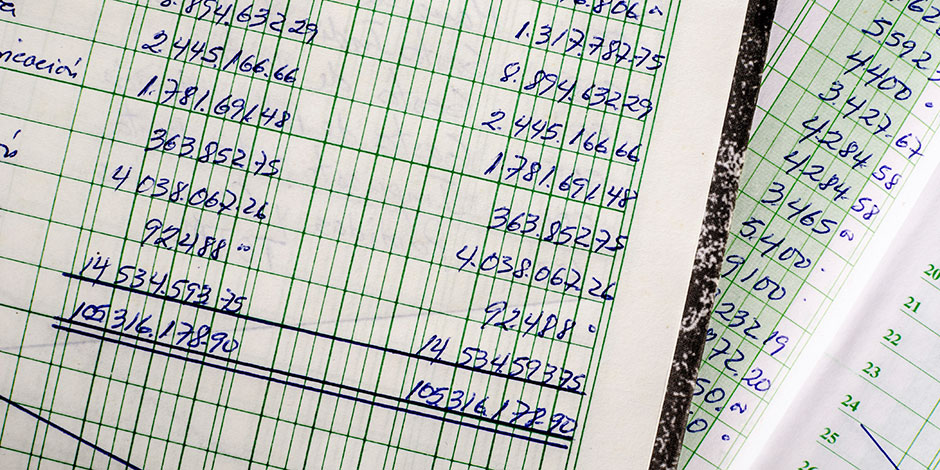 8.894.632 29
nicación 2.445.166.66
1.781.691.48
363.852 75
4 038.067.26
92.488 ∞
14 534.593 75
105316.178.90
.806 ∞
1.317.787.75
8.894.632 29
2.445.166 66
1.781.691.48
363.852 75
4.038.067.26
92.488
14 534.593 75
105316.178.90
4400
3.427.67
4284.58
4284.58
3.465 ∞
5.400
9100
232 19
72.20
50. ∞
20
21
22
23
24
25